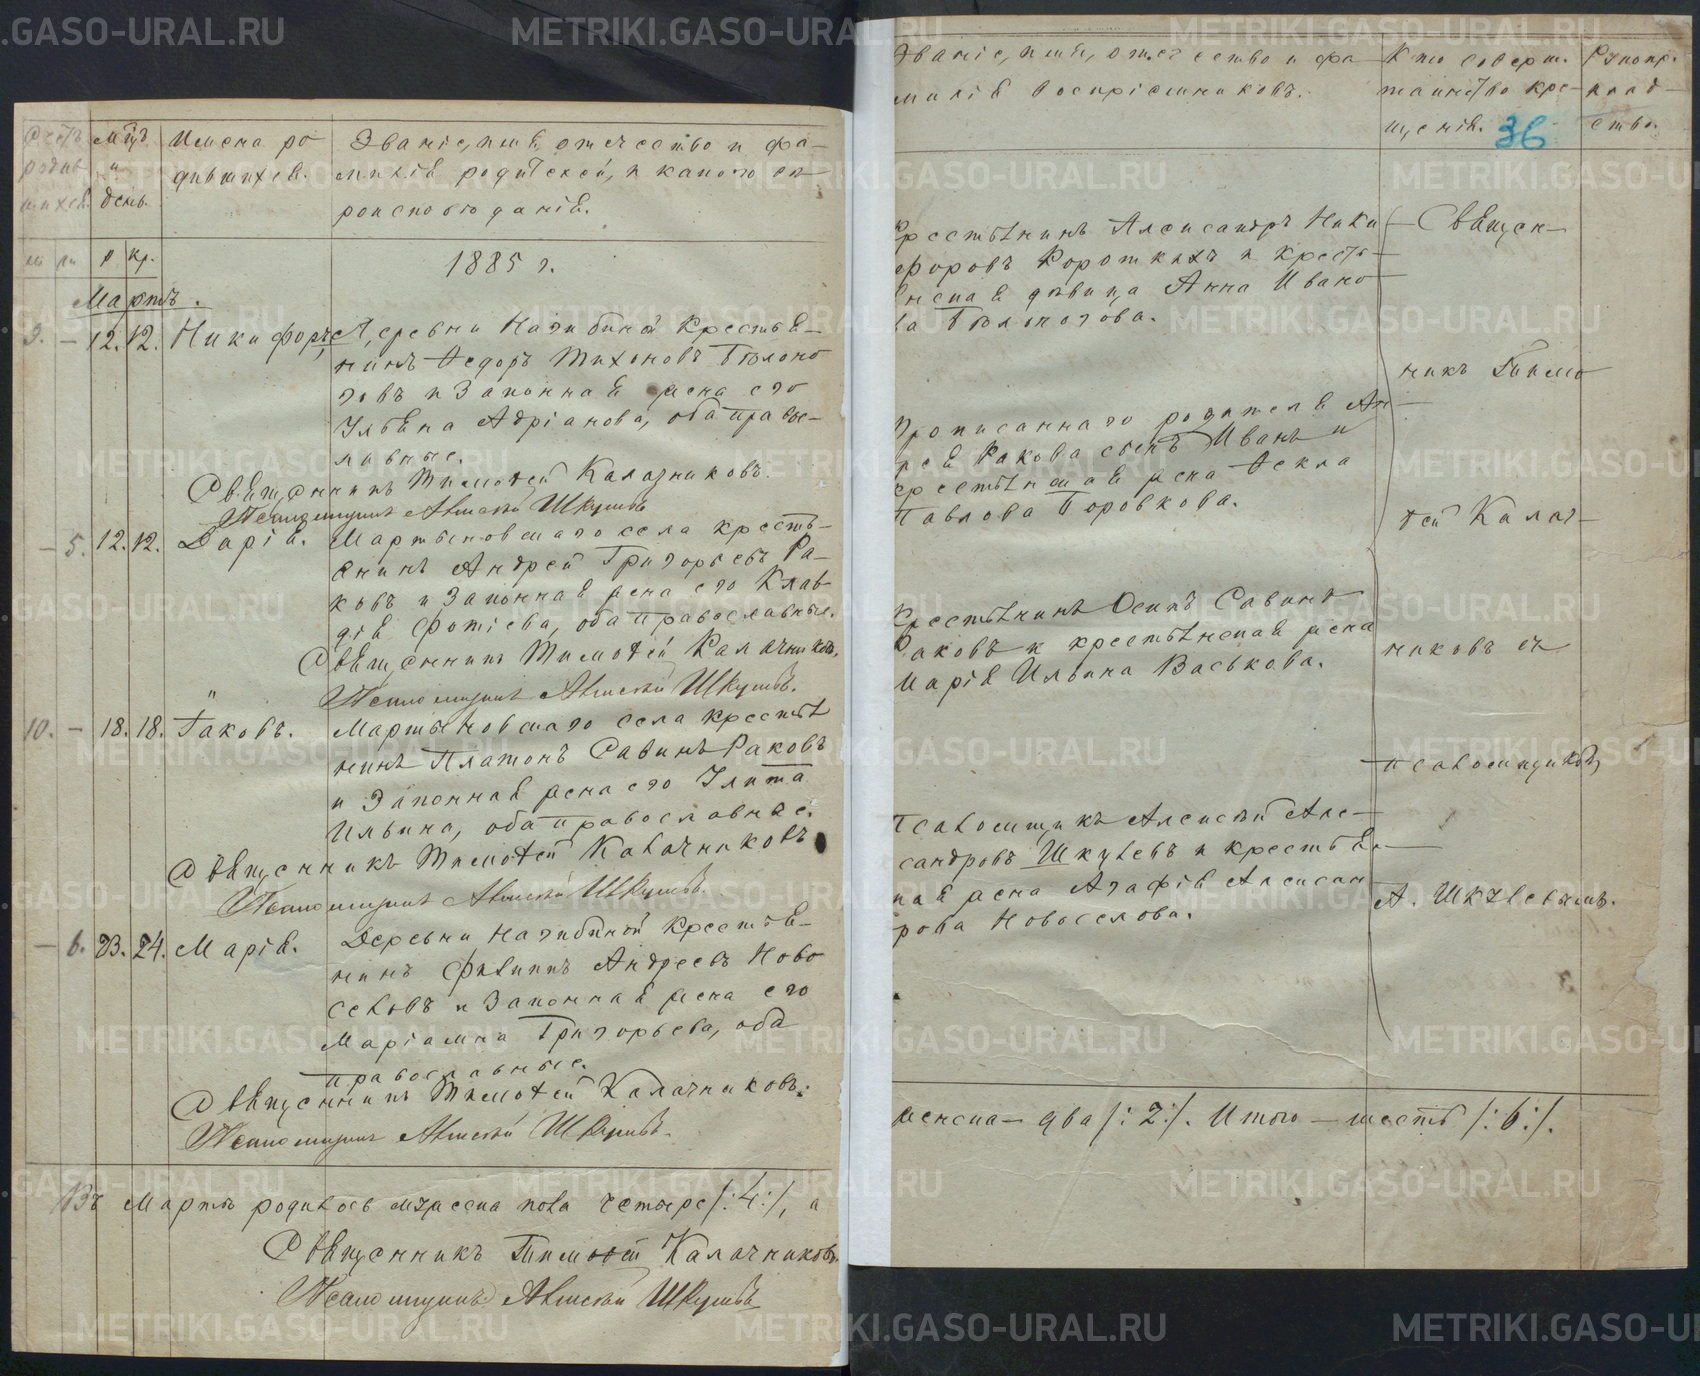 Счетъ родив- шихся.
Мѣс. и день.
Имена ро
дившихся.
Званіе, имя, отчество и фа-
милія родителей, и какого вѣ
роисповѣданія.
м ж р кр.
1885 г.
Мартъ.
9. – 12. 12. Никифоръ. Деревни Нагибиной крестья-
нинъ Ѳедоръ Тихоновъ Бѣлоно
говъ и законная жена его
Ульяна Адріанова, оба правос-
лавные.
Священникъ Тимоѳей Калачниковъ.
Псаломщикъ Алексѣй Шкулевъ
– 5. 12. 12. Дарія. Мартыновскаго села кресть-
янинъ Андрей Григорьевъ Ра-
ковъ и законная жена его Клав-
дія Фотіева, оба православные.
Священникъ Тимоѳей Калачниковъ.
Псаломщикъ Алексѣй Шкулевъ.
10. – 18. 18. Іаковъ. Мартыновскаго села крестья
нинъ Платонъ Савинъ Раковъ
и законная жена его Улита
Ильина, оба православные.
Священникъ Тимоѳей Калачниковъ
Псаломщикъ Алексѣй Шкулевъ.
– 6. 23. 24. Марія. Деревни Нагибиной крестья-
нинъ Филиппъ Андреевъ Ново
селовъ и законная жена его
Маріамна Григорьева, оба
православные.
Священникъ Тимоѳей Калачниковъ.
Псаломщикъ Алексѣй Шкулевъ.
Въ Мартѣ родилось мужеска пола четыре /:4:/, а
Священникъ Тимоѳей Калачниковъ.
Псаломщикъ Алексѣй Шкулевъ
Званіе, имя, отчество и фа-
милія воспріемниковъ.
Кто соверш.
таинство кре-
щенія.
Рукопр.
клад-
ство.
36
Крестьянинъ Александръ Ники
форовъ Коротких и кресть-
янская дѣвица Анна Ивано
ва Бѣлоногова.
Прописаннаго родителя Ан
рея Ракова сынъ Иванъ и
крестьянская жена Ѳекла
Павлова Боровкова.
Крестьянинъ Осипъ Савинъ
Раковъ и крестьянская жена
Марія Ильина Васькова.
Псаломщикъ Алексѣй Але-
сандровъ Шкулевъ и крестьян-
кая жена Агафія Алексан
рова Новоселова.
Священ-
никъ Тимо
ѳей Калач-
никовъ съ
псаломщикомъ
А. Шкулевымъ.
женска – два /:2:/. Итого – шесть /:6:/.
METRIKI.GASO-URAL.RU